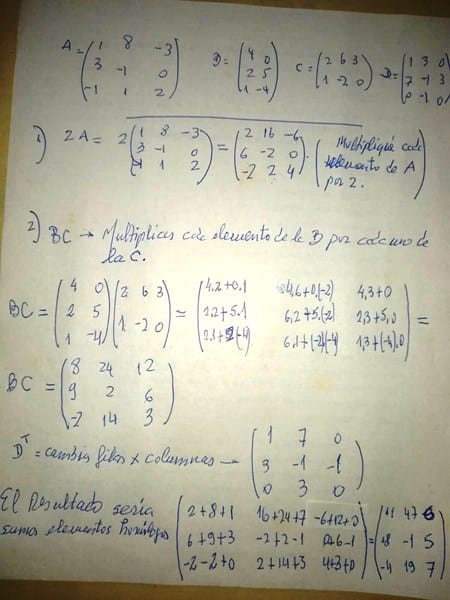 A = (1 8 -3 / 3 -1 0 / -1 1 2) B = (4 0 / 2 5 / 1 -4) C = (2 6 3 / 1 -2 0) D = (1 3 0 / 7 -1 3 / 0 -1 0)
1) 2A = 2 (1 8 -3 / 3 -1 0 / -1 1 2) = (2 16 -6 / 6 -2 0 / -2 2 4). (Multipliqué cada elemento de A por 2.
2) BC → Multiplicas cada elemento de la B por cada uno de
la C.
BC = (4 0 / 2 5 / 1 -4) (2 6 3 / 1 -2 0) = (4.2+0.1 4.6+0.(-2) 4.3+0 / 2.2+5.1 6.2+5.(-2) 2.3+5.0 / 2.1+ (-4) 6.1+(-2)(-4) 1.3+(-4).0) =
BC = (8 24 12 / 9 2 6 / -2 14 3)
Dᵀ = cambias filas x columnas → (1 7 0 / 3 -1 -1 / 0 3 0)
El Resultado sería
sumas elementos homólogos (2+8+1 16+24+7 -6+12+0 / 6+9+3 -2+2-1 0+6-1 / -2-2+0 2+14+3 4+3+0) = (11 47 6 / 18 -1 5 / -4 19 7)